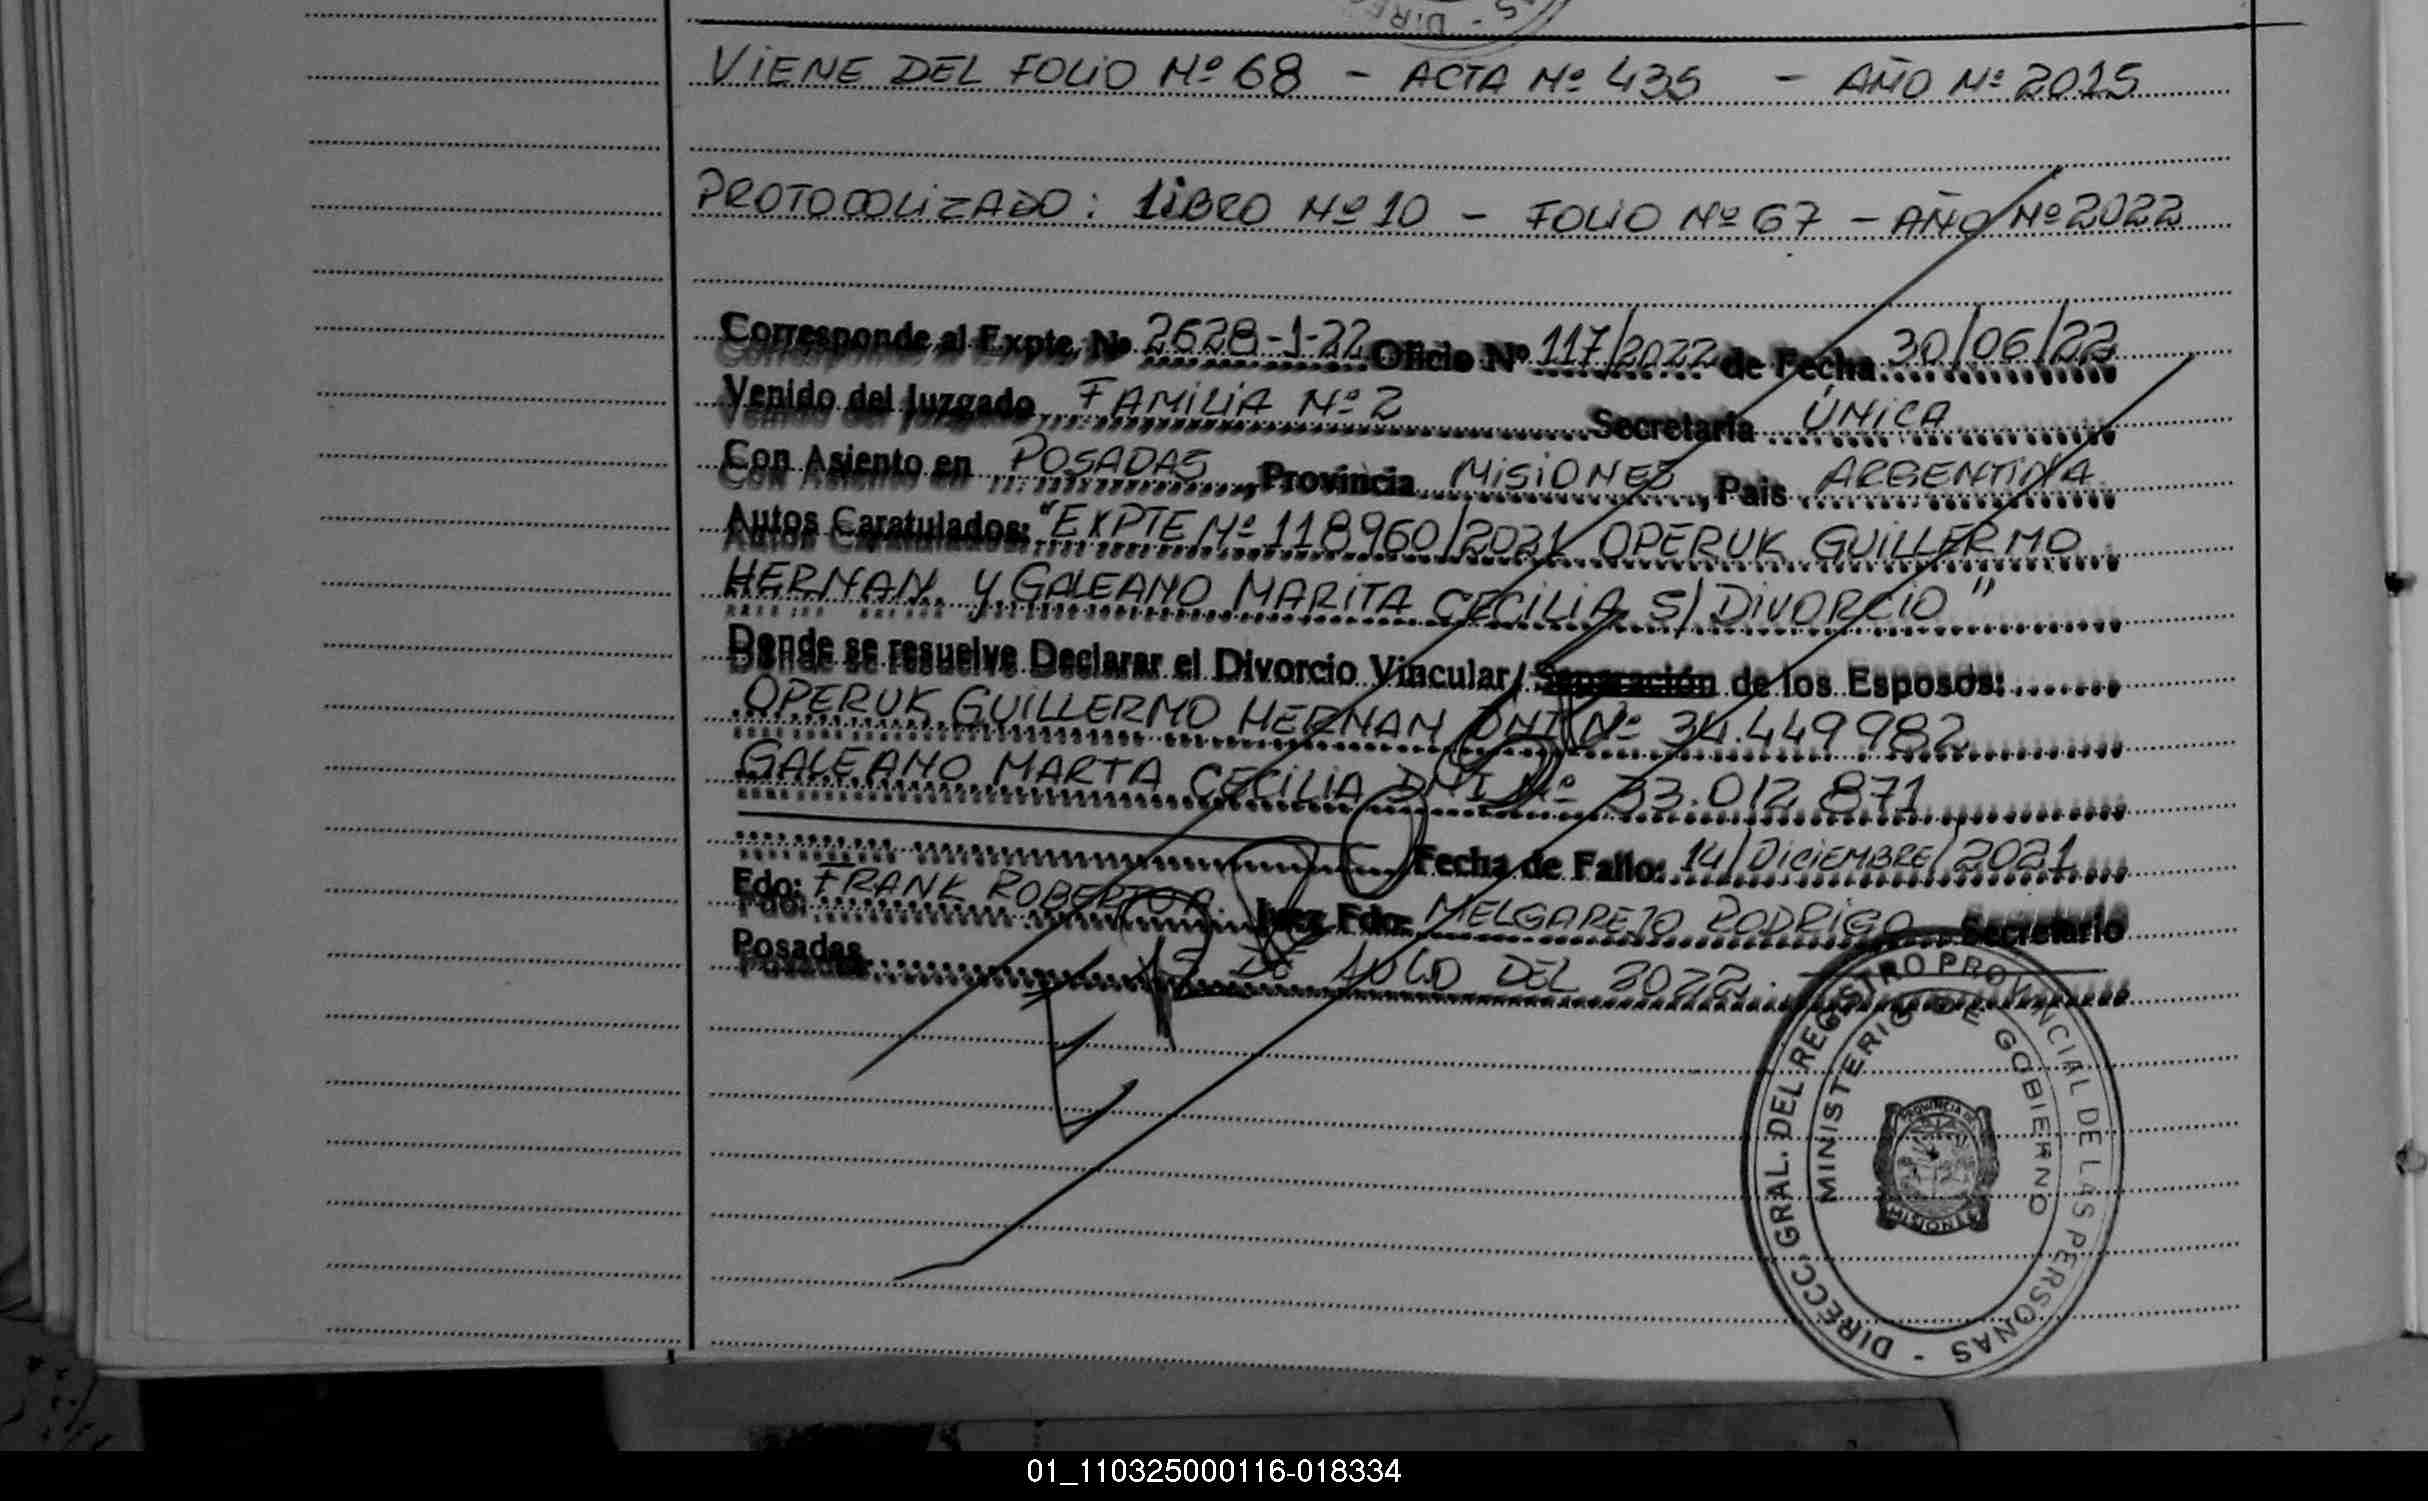 VIENE DEL FOLIO Nº 68 - ACTA Nº 435 - AÑO Nº 2015
PROTOCOLIZADO: LIBRO Nº 10 - FOLIO Nº 67 - AÑO Nº 2022
Corresponde al Expte. Nº 2628-1-22 Oficio Nº 117/2022 de Fecha 30/06/22
Venido del Juzgado FAMILIA Nº 2 Secretaría ÚNICA
Con Asiento en POSADAS, Provincia MISIONES, Pais ARGENTINA
Autos Caratulados: "EXPTE Nº 118960/2021 OPERUK GUILLERMO
HERNAN Y GALEANO MARITA CECILIA S/ DIVORCIO"
Donde se resuelve Declarar el Divorcio Vincular/ Separación de los Esposos:
OPERUK GUILLERMO HERNAN DNI Nº 34.449982
GALEANO MARTA CECILIA DNI Nº 33.012 871
Fecha de Fallo: 14/DICIEMBRE/2021
Fdo: FRANK ROBERTO A. Juez Fdo: MELGAREJO RODRIGO Secretario
Posadas, DE DEL 2022.
DIRECC. GRAL. DEL REGISTRO PROVINCIAL DE LAS PERSONAS -
MINISTERIO DE GOBIERNO
PROVINCIA DE
MISIONES
01_110325000116-018334